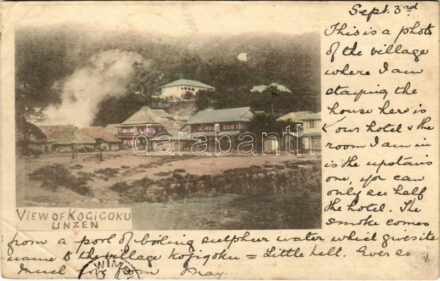 Sept. 3rd
This is a photo
of the village
where I am
staying the
house here is
our hotel & the
room I am in
is the upstairs
one, you can
only see half
the hotel. The
smoke comes
from a pool of boiling sulphur water which gives its
name to the village Kojigoku = Little hell. Ever so
much love from May.
VIEW OF KOGIGOKU
UNZEN
darabanth